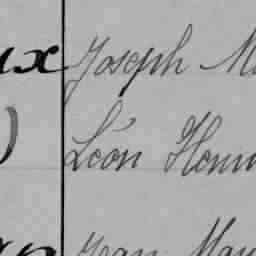 ux Joseph M
) Léon Henri
Jean Mar